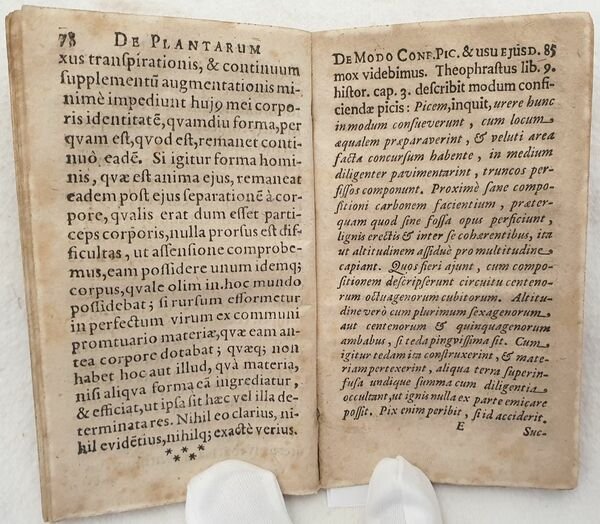 78 DE PLANTARUM
xus transpirationis, & continuum
supplementũ augmentationis mi-
nimè impediunt hujꝰ mei corpo-
ris identitatẽ, quamdiu forma, per
quam est, quod est, remanet conti-
nuò eadẽ. Si igitur forma homi-
nis, quæ est anima ejus, remaneat
eadem post ejus separationẽ à cor-
pore, qualis erat dum esset parti-
ceps corporis, nulla prorsus est dif-
ficultas, ut assensione comprobe-
mus, eam possidere unum idemq;
corpus, quale olim in hoc mundo
possidebat; si rursum efformetur
in perfectum virum ex communi
promtuario materiæ, quæ eam an-
tea corpore dotabat; quæq; non
habet hoc aut illud, quà materia,
nisi aliqua forma eã ingrediatur,
& efficiat, ut ipsa sit hæc vel illa de-
terminata res. Nihil eo clarius, ni-
hil evidẽtius, nihilq; exactè verius.
DE MODO CONF. PIC. & usu ejusD. 85
mox videbimus. Theophrastus lib. 9.
histor. cap. 3. describit modum confi-
ciendæ picis: Picem, inquit, urere hunc
in modum consueverunt, cum locum
æqualem præparaverint, & veluti area
facta concursum habente, in medium
diligenter pavimentarint, truncos per-
fissos componunt. Proximè sane compo-
sitioni carbonem facientium, præter-
quam quod sine fossa opus perficiunt,
lignis erectis & inter se cohærentibus, ita
ut altitudinem assiduè pro multitudine
capiant. Quos fieri ajunt, cum compo-
sitionem descripserunt circuitu centeno-
rum octuagenorum cubitorum. Altitu-
dine verò cum plurimum sexagenorum
aut centenorum & quinquagenorum
ambabus, si teda pinguissima sit. Cum
igitur tedam ita construxerint, & mate-
riam pertexerint, aliqua terra superin-
fusa undique summa cum diligentia
occultant, ut ignis nulla ex parte emicare
possit. Pix enim peribit, si id acciderit.
E Suc-